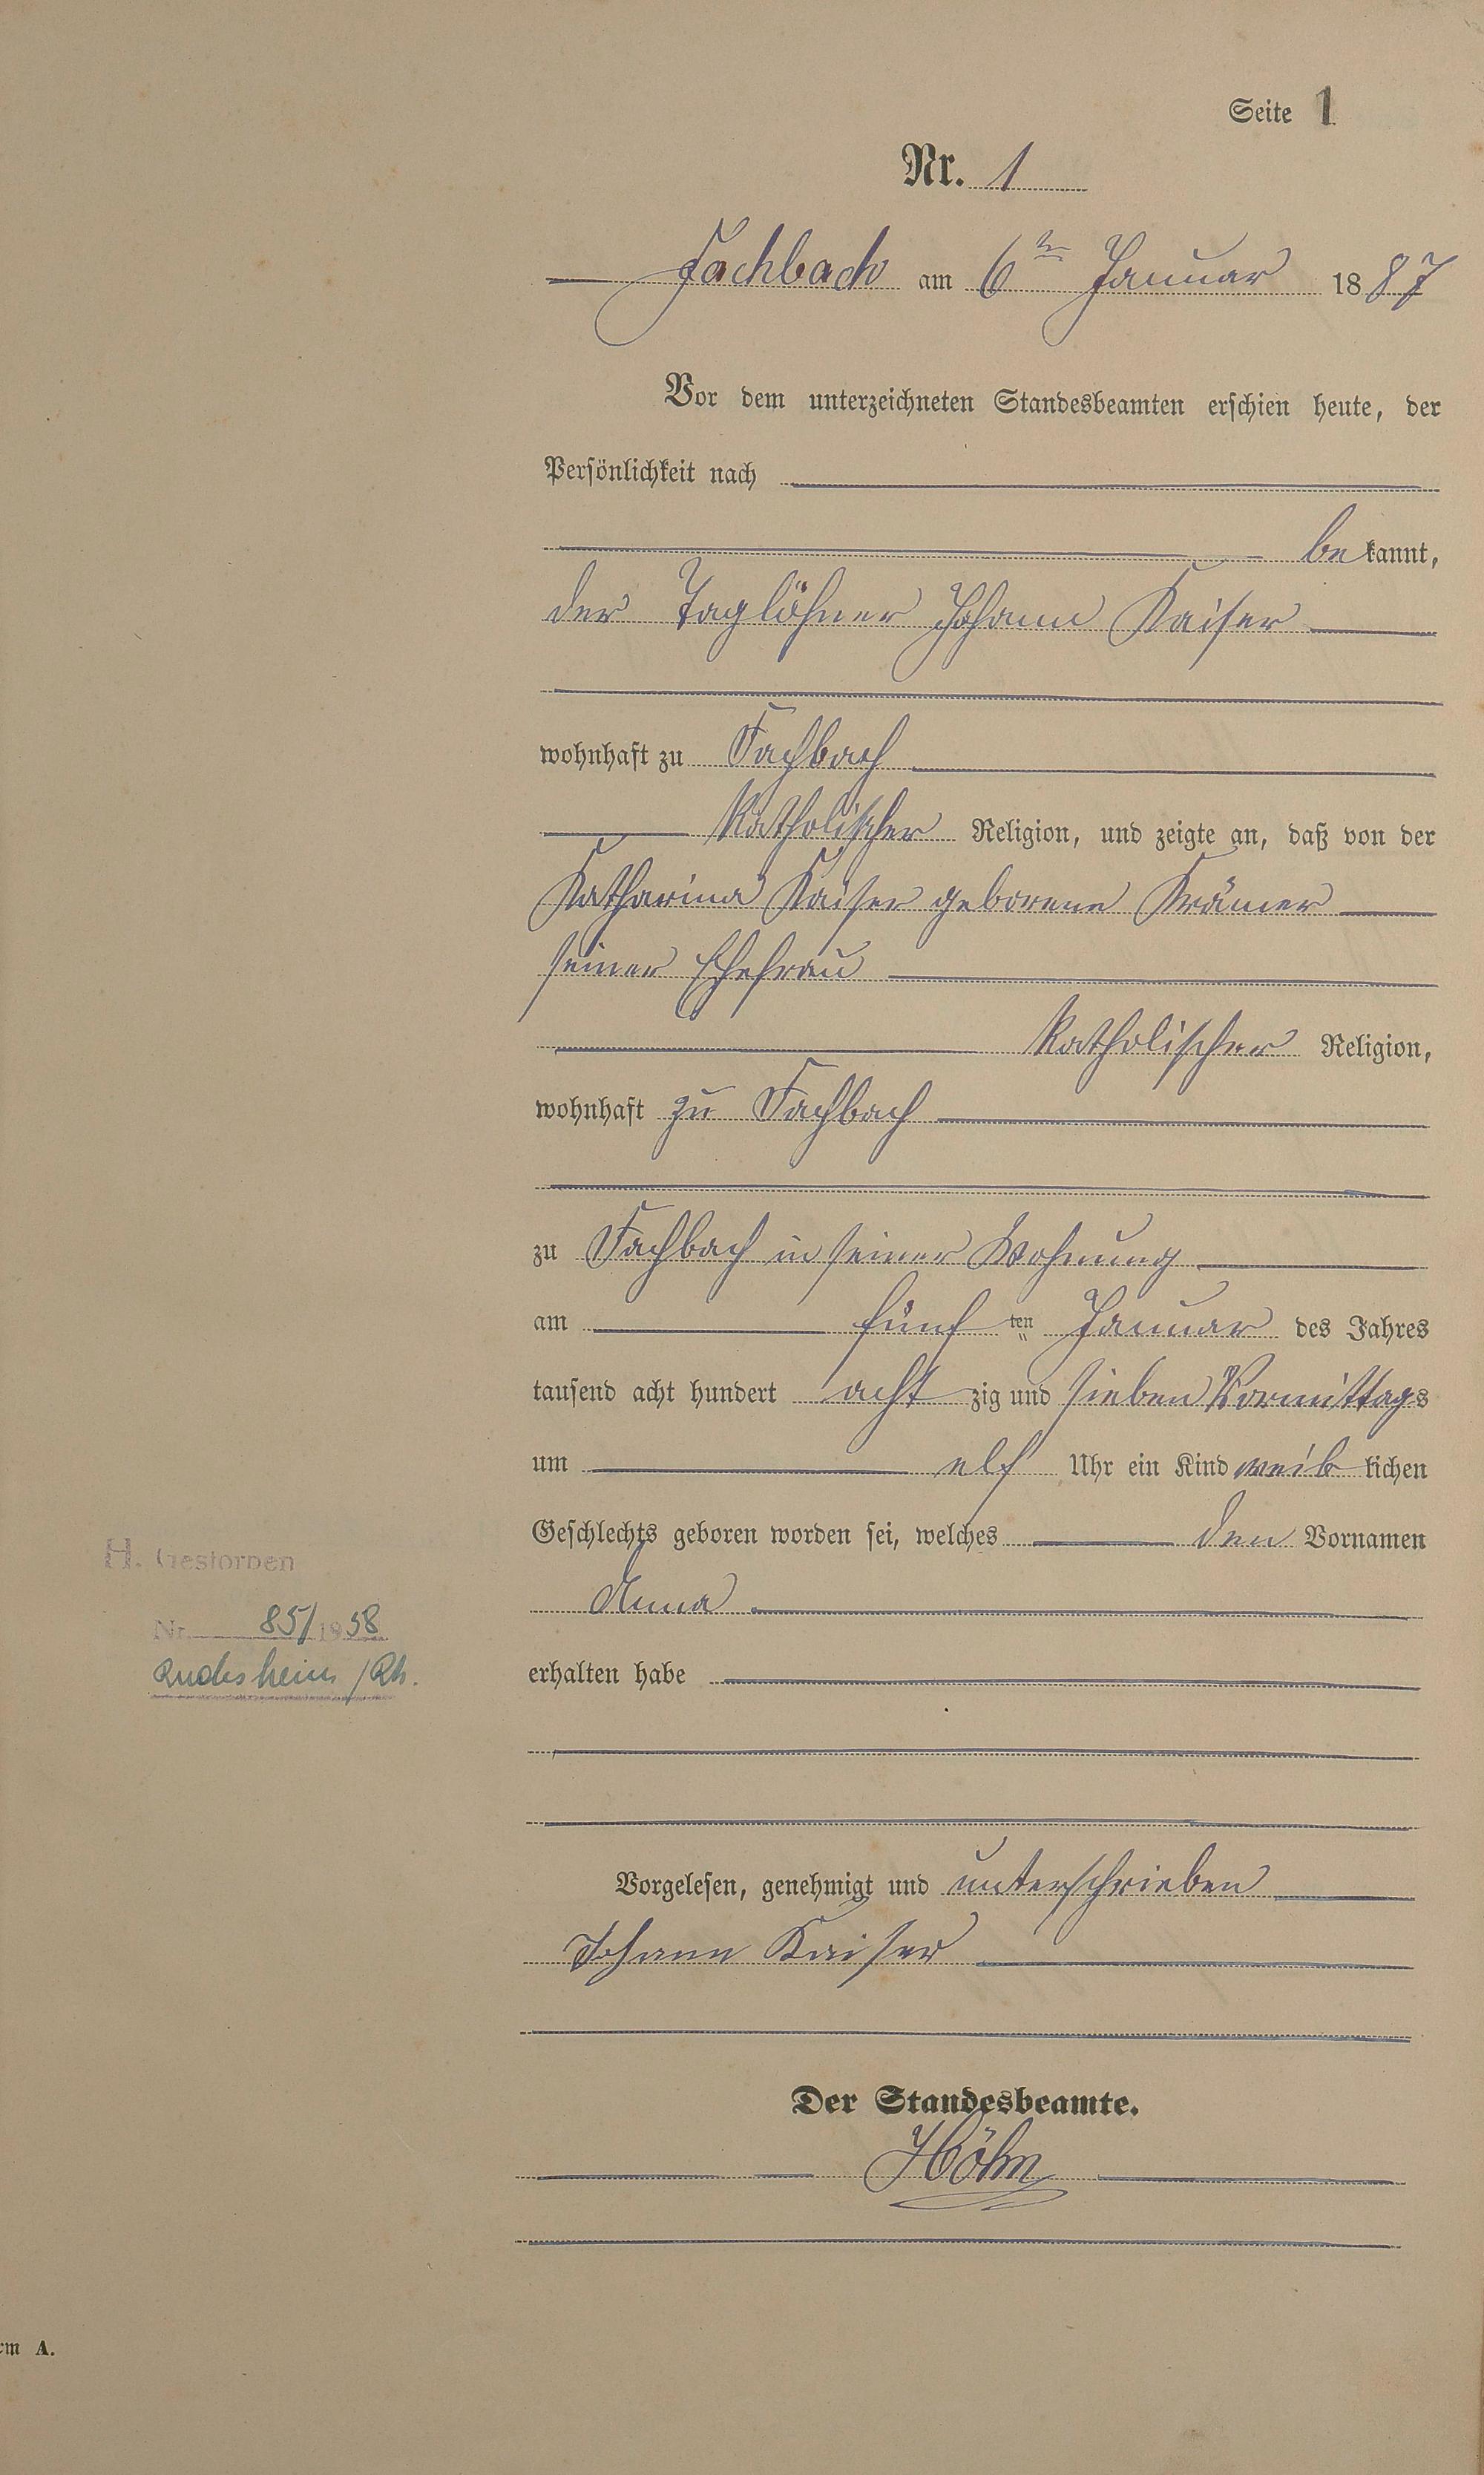 Seite 1
Nr. 1
Fachbach am 6ten Januar 1887
Vor dem unterzeichneten Standesbeamten erschien heute, der
Persönlichkeit nach
bekannt,
der Taglöhner Johann Kaiser
wohnhaft zu Fachbach
katholischer Religion, und zeigte an, daß von der
Katharina Kaiser geborene Krämer
seiner Ehefrau
katholischer Religion,
wohnhaft zu Fachbach
zu Fachbach in seiner Wohnung
am fünf ten Januar des Jahres
tausend acht hundert acht zig und sieben Vormittags
um elf Uhr ein Kind weib lichen
Geschlechts geboren worden sei, welches den Vornamen
H. Gestorben
Anna
Nr. 85/1958
Rüdesheim /Rh.
erhalten habe
Vorgelesen, genehmigt und unterschrieben
Johann Kaiser
Der Standesbeamte.
Höhn
rm A.